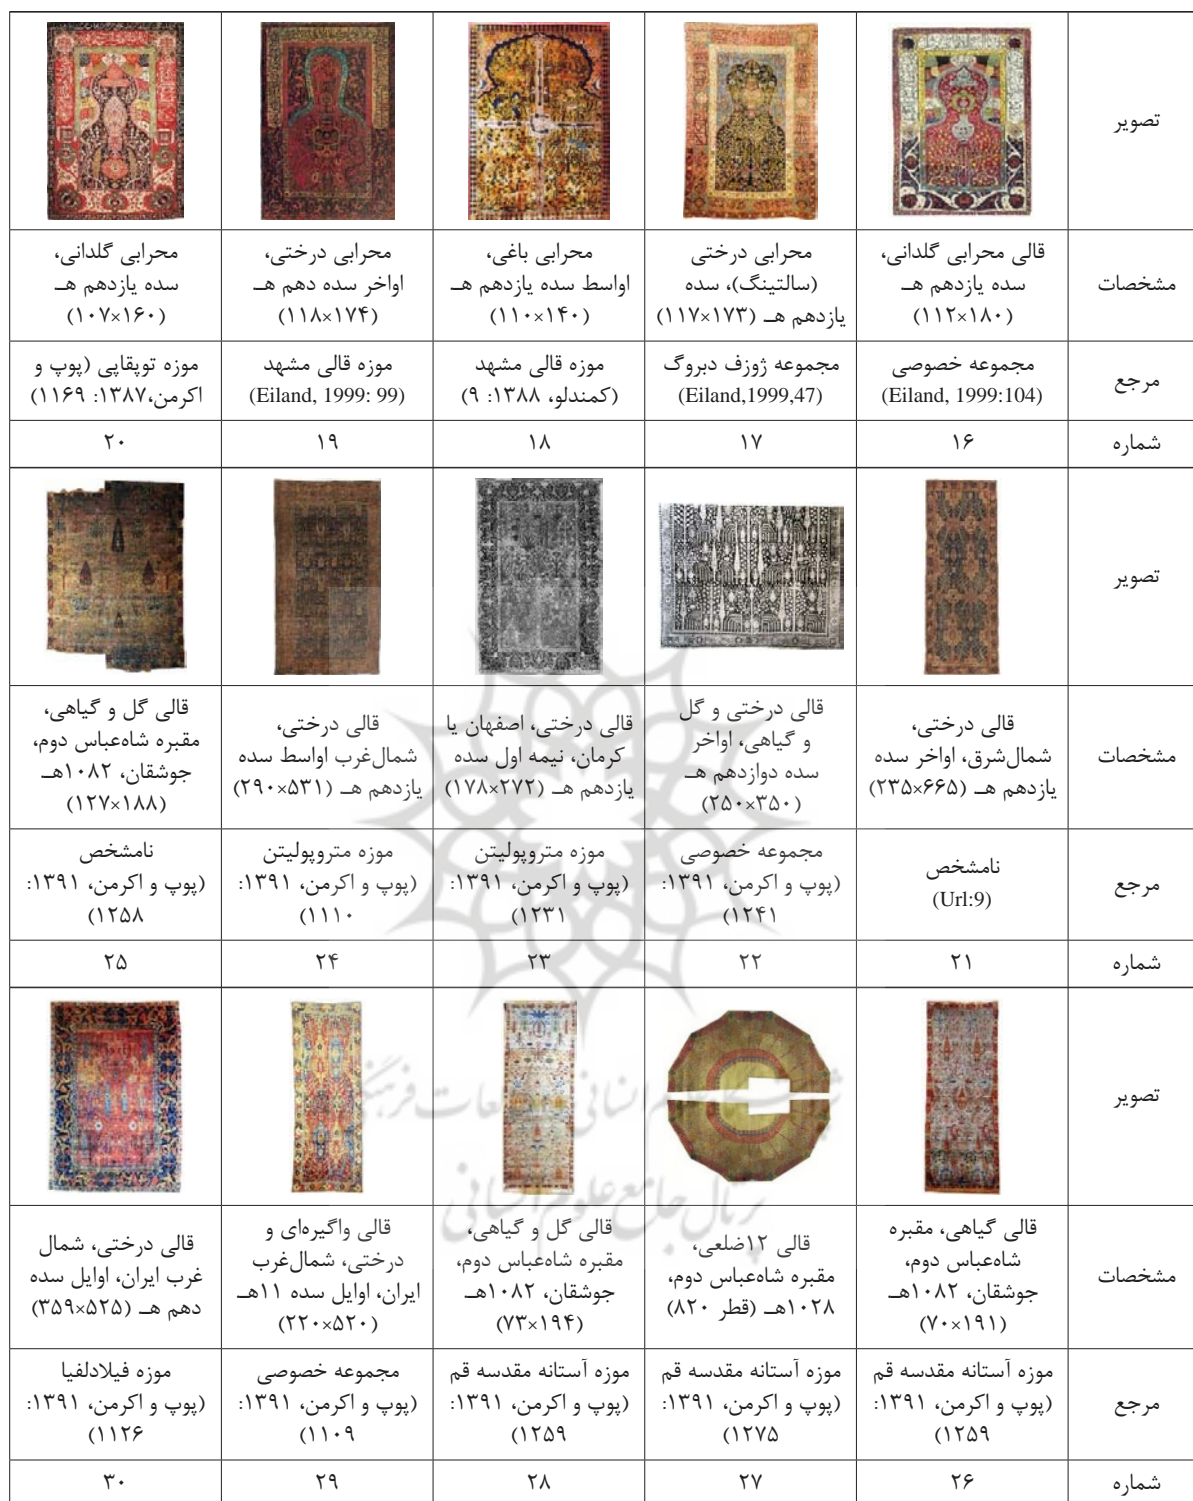 تصویر
مشخصات
قالی محرابی گلدانی،
سده یازدهم هـ
(۱۱۲×۱۸۰)
محرابی درختی
(سالتینگ)، سده
یازدهم هـ (۱۱۷×۱۷۳)
محرابی باغی،
اواسط سده یازدهم هـ
(۱۱۰×۱۴۰)
محرابی درختی،
اواخر سده دهم هـ
(۱۱۸×۱۷۴)
محرابی گلدانی،
سده یازدهم هـ
(۱۰۷×۱۶۰)
مرجع
مجموعه خصوصی
(Eiland, 1999:104)
مجموعه ژوزف دبروگ
(Eiland,1999,47)
موزه قالی مشهد
(کمندلو، ۱۳۸۸: ۹)
موزه قالی مشهد
(Eiland, 1999: 99)
موزه توپقاپی (پوپ و
اکرمن،۱۳۸۷: ۱۱۶۹)
شماره
۱۶
۱۷
۱۸
۱۹
۲۰
تصویر
مشخصات
قالی درختی،
شمال‌شرق، اواخر سده
یازدهم هـ (۲۳۵×۶۶۵)
قالی درختی و گل
و گیاهی، اواخر
سده دوازدهم هـ
(۲۵۰×۳۵۰)
قالی درختی، اصفهان یا
کرمان، نیمه اول سده
یازدهم هـ (۱۷۸×۲۷۲)
قالی درختی،
شمال‌غرب اواسط سده
یازدهم هـ (۲۹۰×۵۳۱)
قالی گل و گیاهی،
مقبره شاه‌عباس دوم،
جوشقان، ۱۰۸۲هـ
(۱۲۷×۱۸۸)
مرجع
نامشخص
(Url:9)
مجموعه خصوصی
(پوپ و اکرمن، ۱۳۹۱:
۱۲۴۱)
موزه متروپولیتن
(پوپ و اکرمن، ۱۳۹۱:
۱۲۳۱)
موزه متروپولیتن
(پوپ و اکرمن، ۱۳۹۱:
۱۱۱۰)
نامشخص
(پوپ و اکرمن، ۱۳۹۱:
۱۲۵۸)
شماره
۲۱
۲۲
۲۳
۲۴
۲۵
تصویر
پرتال جامع علوم انسانی
مشخصات
قالی گیاهی، مقبره
شاه‌عباس دوم،
جوشقان، ۱۰۸۲هـ
(۷۰×۱۹۱)
قالی ۱۲ضلعی،
مقبره شاه‌عباس دوم،
۱۰۲۸هـ (قطر ۸۲۰)
قالی گل و گیاهی،
مقبره شاه‌عباس دوم،
جوشقان، ۱۰۸۲هـ
(۷۳×۱۹۴)
قالی واگیره‌ای و
درختی، شمال‌غرب
ایران، اوایل سده ۱۱هـ
(۲۲۰×۵۲۰)
قالی درختی، شمال
غرب ایران، اوایل سده
دهم هـ (۳۵۹×۵۲۵)
مرجع
موزه آستانه مقدسه قم
(پوپ و اکرمن، ۱۳۹۱:
۱۲۵۹)
موزه آستانه مقدسه قم
(پوپ و اکرمن، ۱۳۹۱:
۱۲۷۵)
موزه آستانه مقدسه قم
(پوپ و اکرمن، ۱۳۹۱:
۱۲۵۹)
مجموعه خصوصی
(پوپ و اکرمن، ۱۳۹۱:
۱۱۰۹)
موزه فیلادلفیا
(پوپ و اکرمن، ۱۳۹۱:
۱۱۲۶)
شماره
۲۶
۲۷
۲۸
۲۹
۳۰